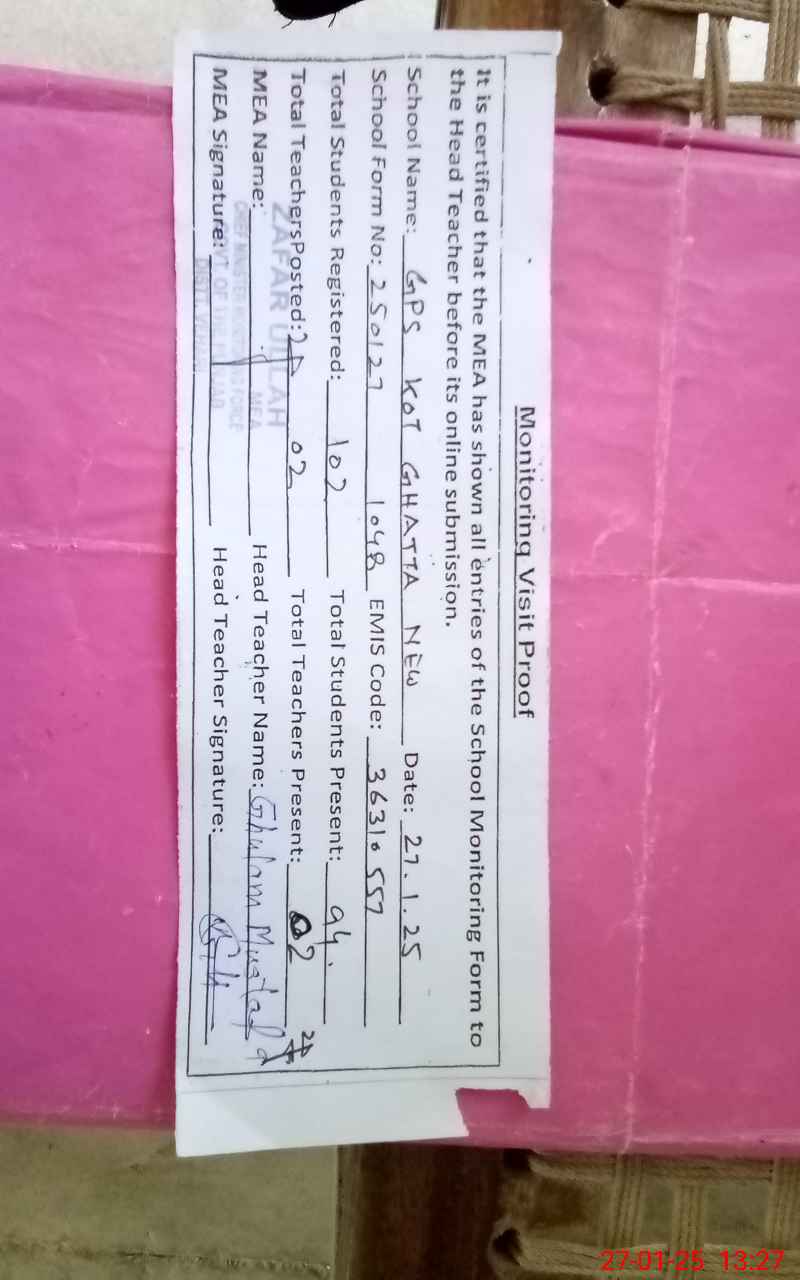 Monitoring Visit Proof
It is certified that the MEA has shown all entries of the School Monitoring Form to
the Head Teacher before its online submission.
School Name: GPS KOT GHATTA NEW Date: 27.1.25
School Form No: 250127 1048 EMIS Code: 36310557
Total Students Registered: 102 Total Students Present: 94.
Total Teachers Posted: 02 Total Teachers Present: 02
MEA Name: Head Teacher Name: Ghulam Mustafa
MEA Signature: Head Teacher Signature:
ZAFAR ULLAH
MEA
CHIEF MINISTER MONITORING FORCE
GOVT OF THE
DISTT. VEHARI
27-01-25 13:27